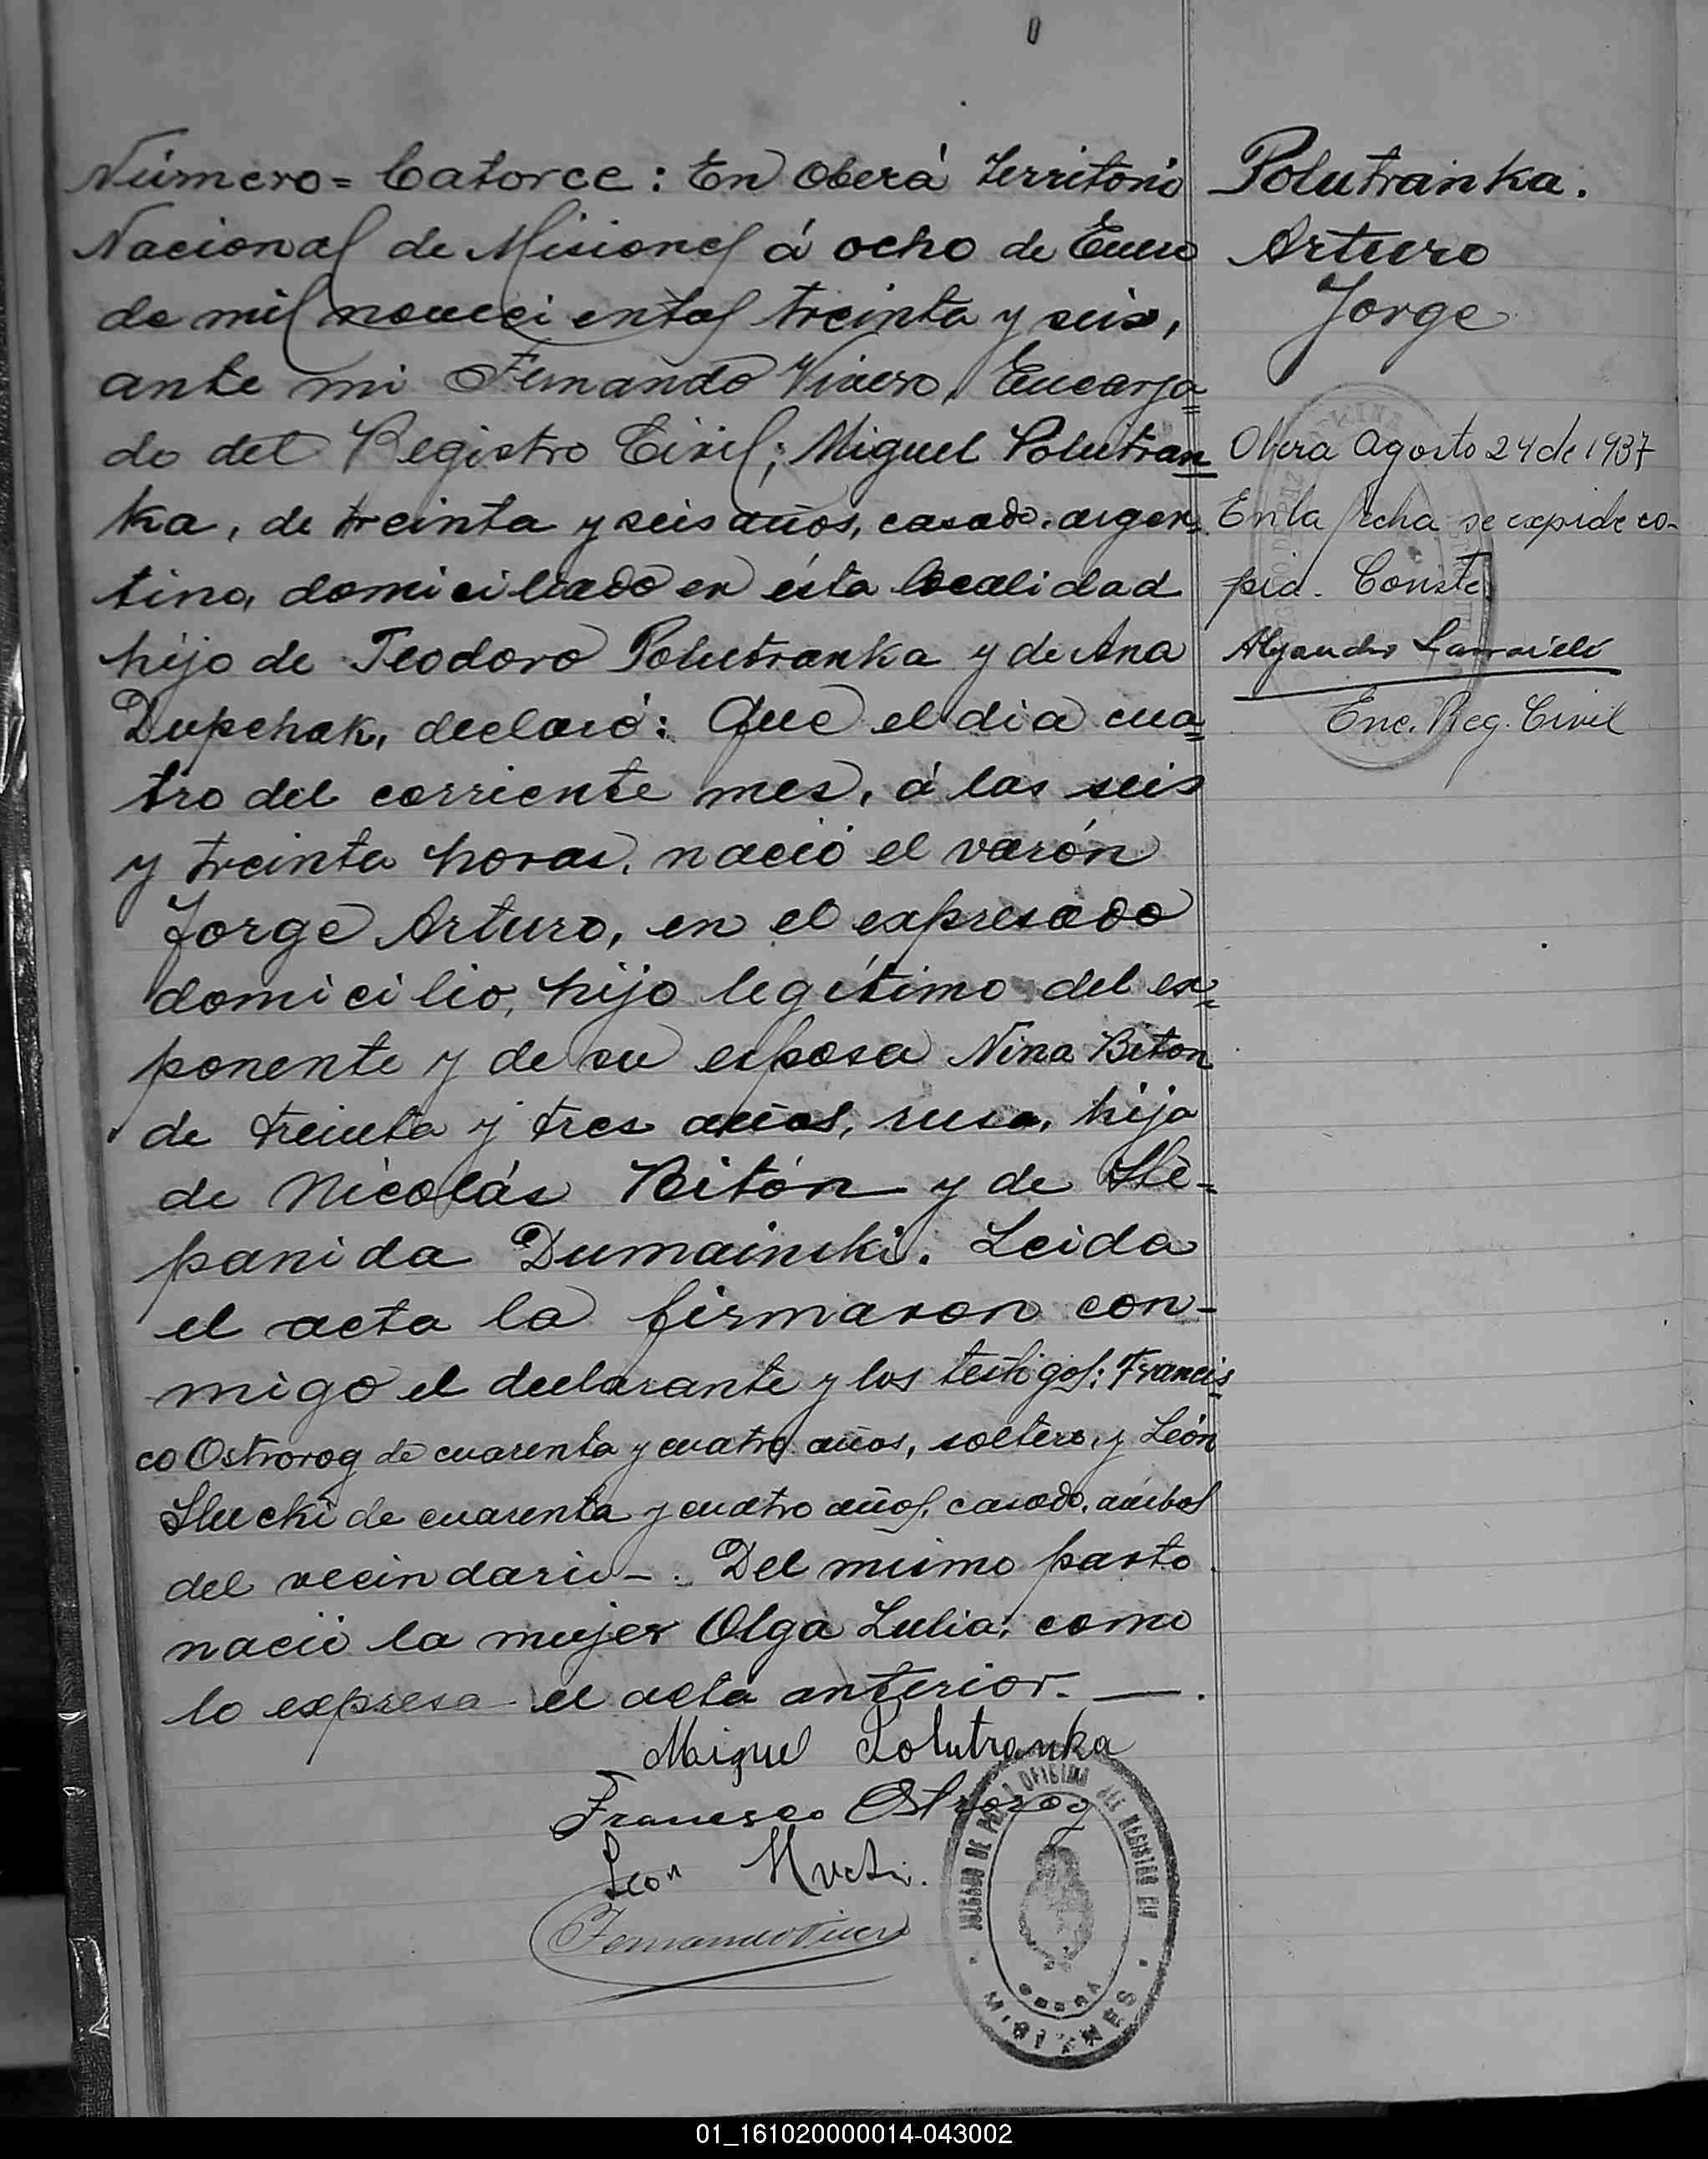 Número = Catorce: En Oberá Territorio
Nacional de Misiones á ocho de Enero
de mil novecientos treinta y seis,
ante mi Fernando Vivero, Encarga=
do del Registro Civil; Miguel Polutran=
ka, de treinta y seis años, casado, argen=
tino, domiciliado en ésta localidad
hijo de Teodoro Polutranka y de Ana
Dupchak, declaró: Que el dia cua=
tro del corriente mes, á las seis
y treinta horas, nació el varón
Jorge Arturo, en el expresado
domicilio, hijo legítimo del ex=
ponente y de su esposa Nina Biton
de treinta y tres años, rusa, hija
de Nicolás Bitón y de Ste=
panida Dumainski. Leida
el acta la firmaron con-
migo el declarante y los testigos: Francis=
co Ostrorog de cuarenta y cuatro años, soltero, y León
Slucki de cuarenta y cuatro años, casado, ámbos
del vecindario -. Del mismo parto
nació la mujer Olga Lulia; como
lo expresa el acta anterior. —.
Miguel Polutranka
Francisco Ostrorog
Leon
JUZGADO DE PAZ Y OFICINA DEL REGISTRO CIVIL
OBERA
MISIONES
Polutranka.
Arturo
Jorge
Obera Agosto 24 de 1937
En la fecha se expide co-
pia. Conste
Alejandro
Enc. Reg. Civil
01_161020000014-043002